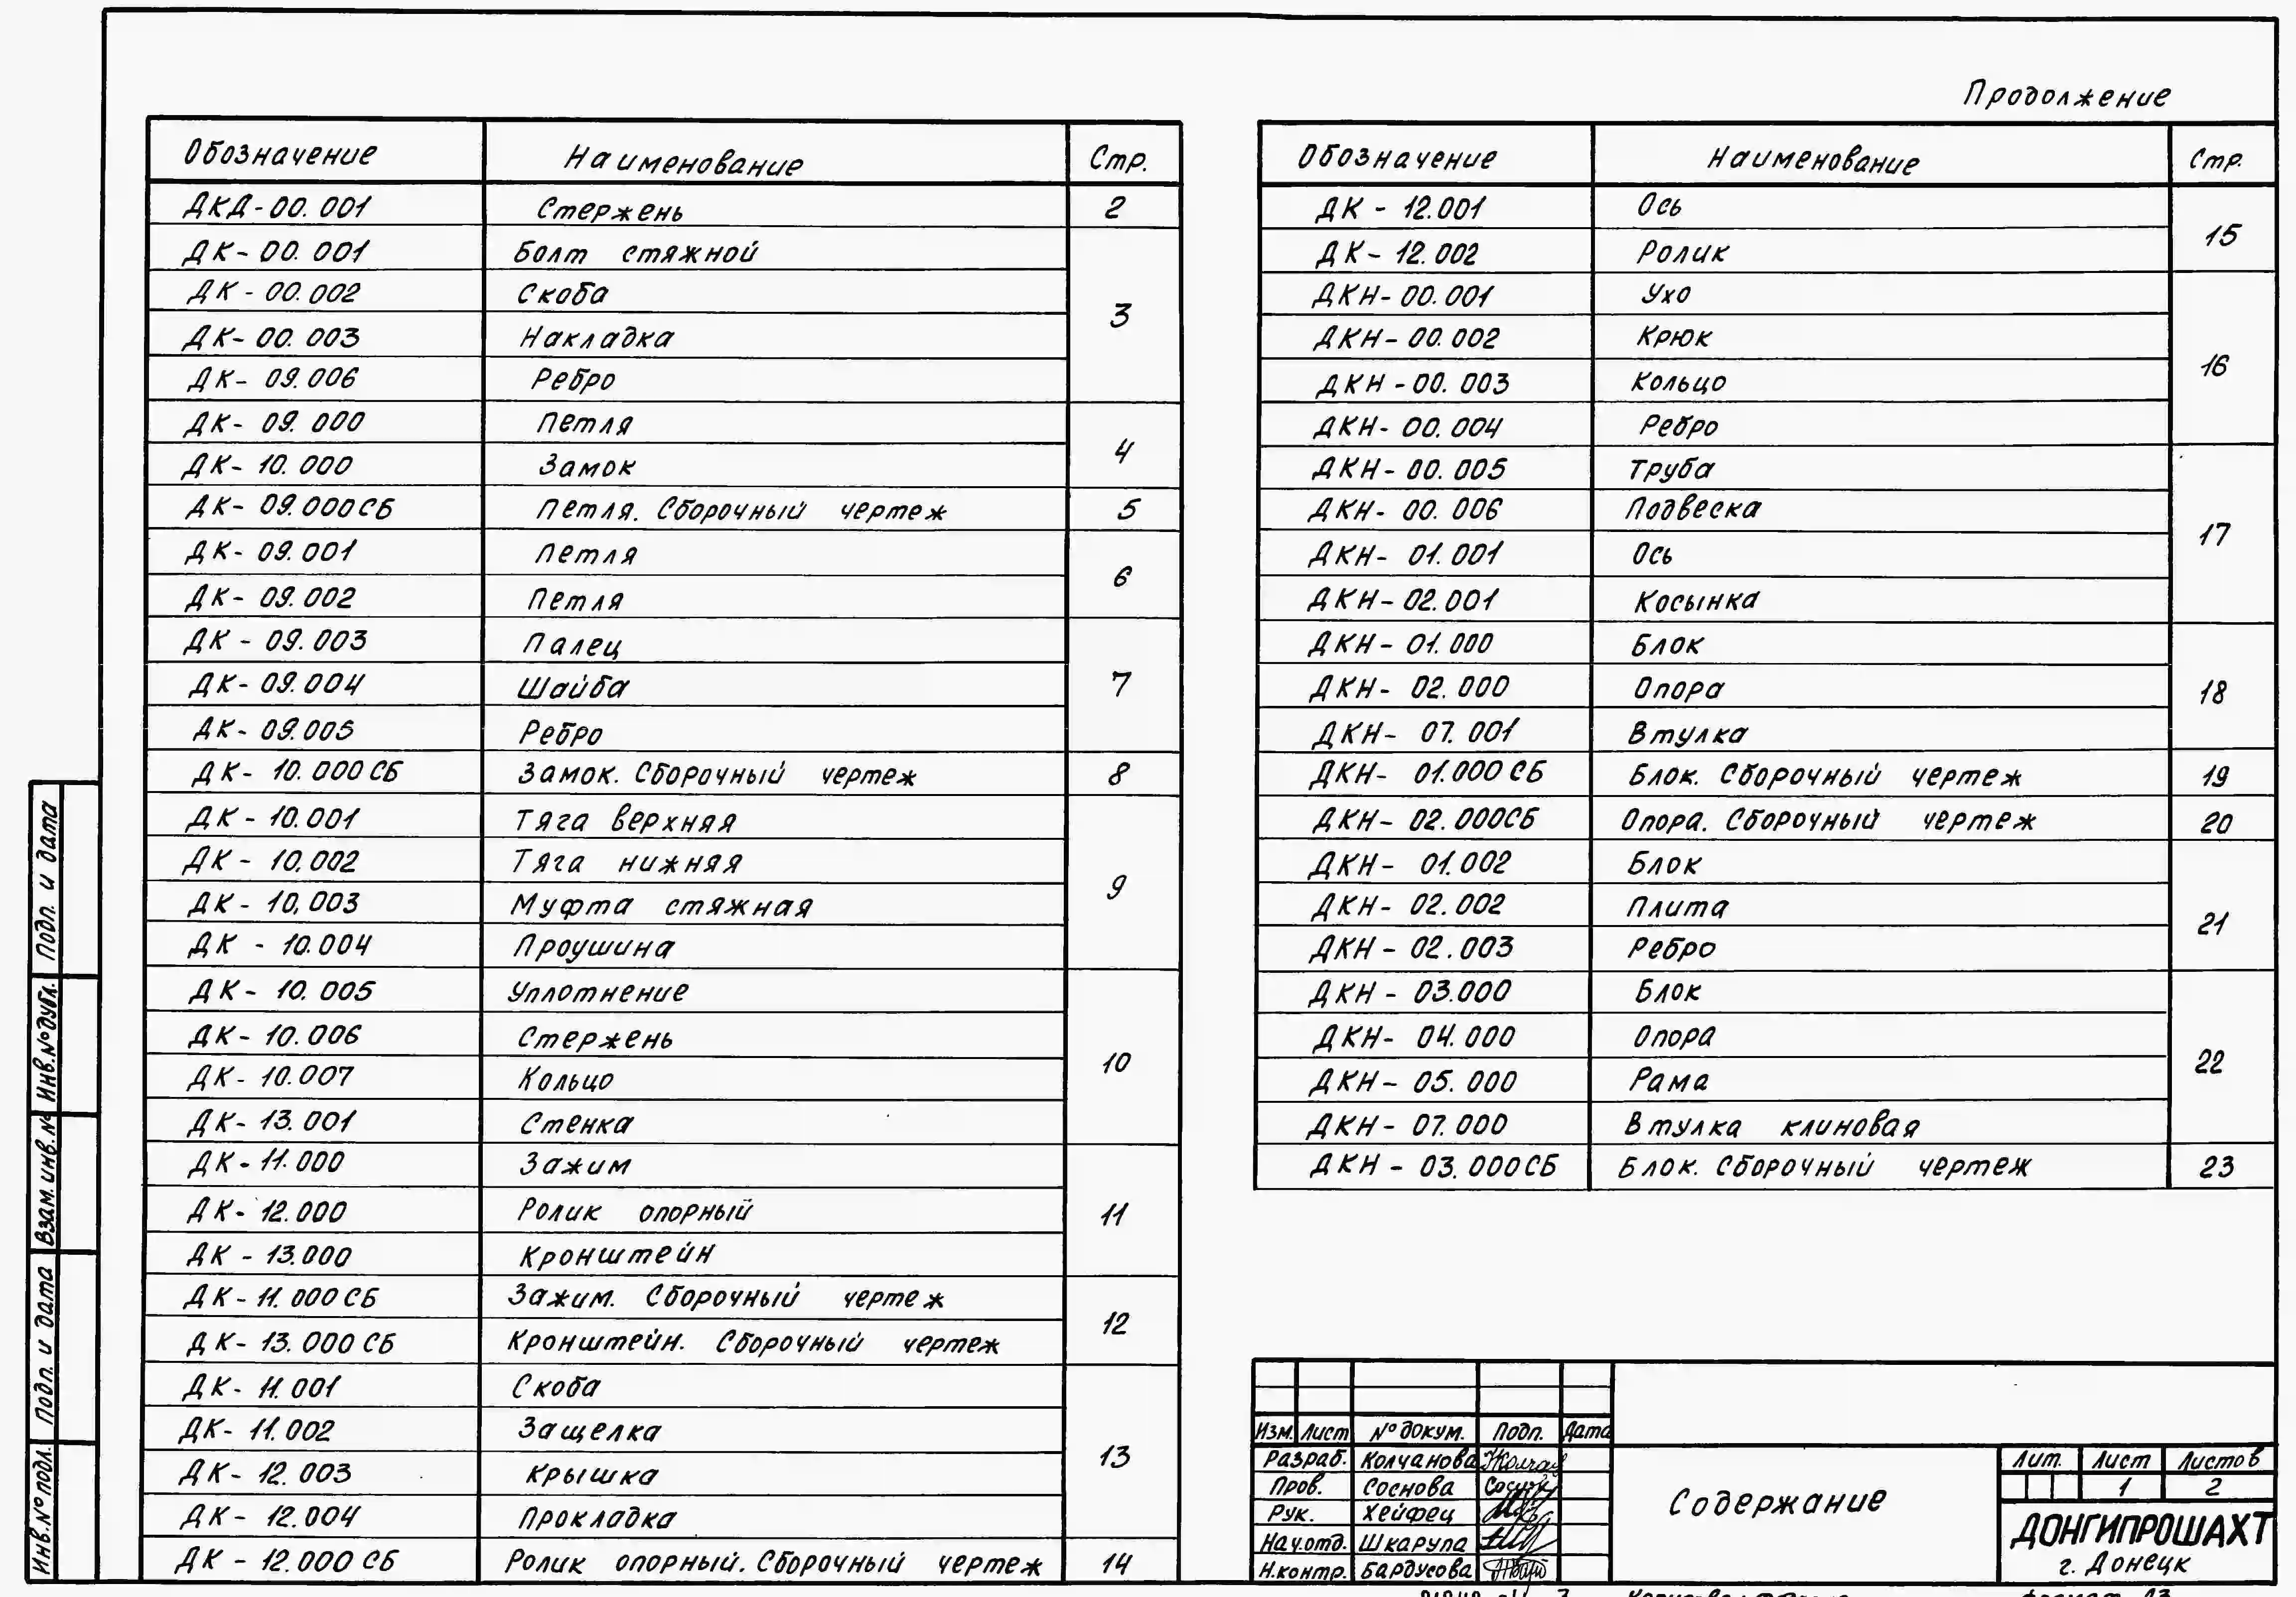 Продолжение
Обозначение Наименование Стр.
ДКД-00.001 Стержень 2
ДК-00.001 Болт стяжной 3
ДК-00.002 Скоба
ДК-00.003 Накладка
ДК-09.006 Ребро
ДК-09.000 Петля 4
ДК-10.000 Замок
ДК-09.000СБ Петля. Сборочный чертеж 5
ДК-09.001 Петля 6
ДК-09.002 Петля
ДК-09.003 Палец 7
ДК-09.004 Шайба
ДК-09.005 Ребро
ДК-10.000СБ Замок. Сборочный чертеж 8
ДК-10.001 Тяга верхняя 9
ДК-10.002 Тяга нижняя
ДК-10.003 Муфта стяжная
ДК-10.004 Проушина
ДК-10.005 Уплотнение 10
ДК-10.006 Стержень
ДК-10.007 Кольцо
ДК-13.001 Стенка
ДК-11.000 Зажим 11
ДК-12.000 Ролик опорный
ДК-13.000 Кронштейн
ДК-11.000СБ Зажим. Сборочный чертеж 12
ДК-13.000СБ Кронштейн. Сборочный чертеж
ДК-11.001 Скоба 13
ДК-11.002 Защелка
ДК-12.003 Крышка
ДК-12.004 Прокладка
ДК-12.000СБ Ролик опорный. Сборочный чертеж 14
Обозначение Наименование Стр.
ДК-12.001 Ось 15
ДК-12.002 Ролик
ДКН-00.001 Ухо 16
ДКН-00.002 Крюк
ДКН-00.003 Кольцо
ДКН-00.004 Ребро
ДКН-00.005 Труба 17
ДКН-00.006 Подвеска
ДКН-01.001 Ось
ДКН-02.001 Косынка
ДКН-01.000 Блок 18
ДКН-02.000 Опора
ДКН-07.001 Втулка
ДКН-01.000СБ Блок. Сборочный чертеж 19
ДКН-02.000СБ Опора. Сборочный чертеж 20
ДКН-01.002 Блок 21
ДКН-02.002 Плита
ДКН-02.003 Ребро
ДКН-03.000 Блок 22
ДКН-04.000 Опора
ДКН-05.000 Рама
ДКН-07.000 Втулка клиновая
ДКН-03.000СБ Блок. Сборочный чертеж 23
Изм. Лист № докум. Подп. Дата
Разраб. Колчанова
Пров. Соснова
Рук. Хейфец
Нач.отд. Шкарупа
Н.контр. Бардусова
Содержание
Лит. Лист Листов
1 2
ДОНГИПРОШАХТ
г. Донецк
Подп. и дата
Инв.№дубл.
Взам.инв.№
Подп. и дата
Инв.№подл.